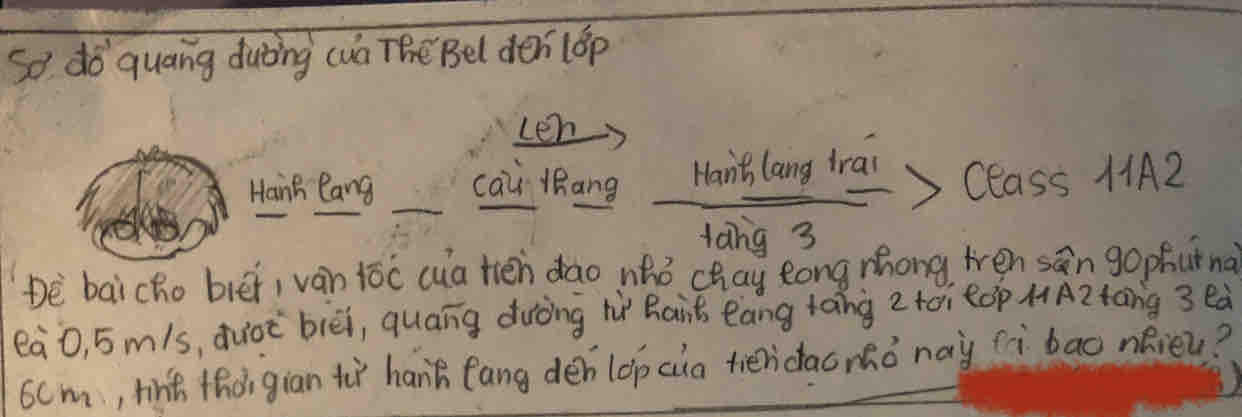 Sơ đồ quãng đường của Thế Bel đến lớp
Lên
Hành lang cầu thang Hành lang trái > Class 11A2
tầng 3
Đề bài cho biết, vận tốc của tiền đạo nhỏ chạy long nhong trên sân 90 phút
là 0,5 m/s, được biết, quãng đường từ hành lang tầng 2 tới lớp 11A2 tầng 3 là
tính thời gian từ hành lang đến lớp của tiền đạo nhỏ này bao nhiêu?